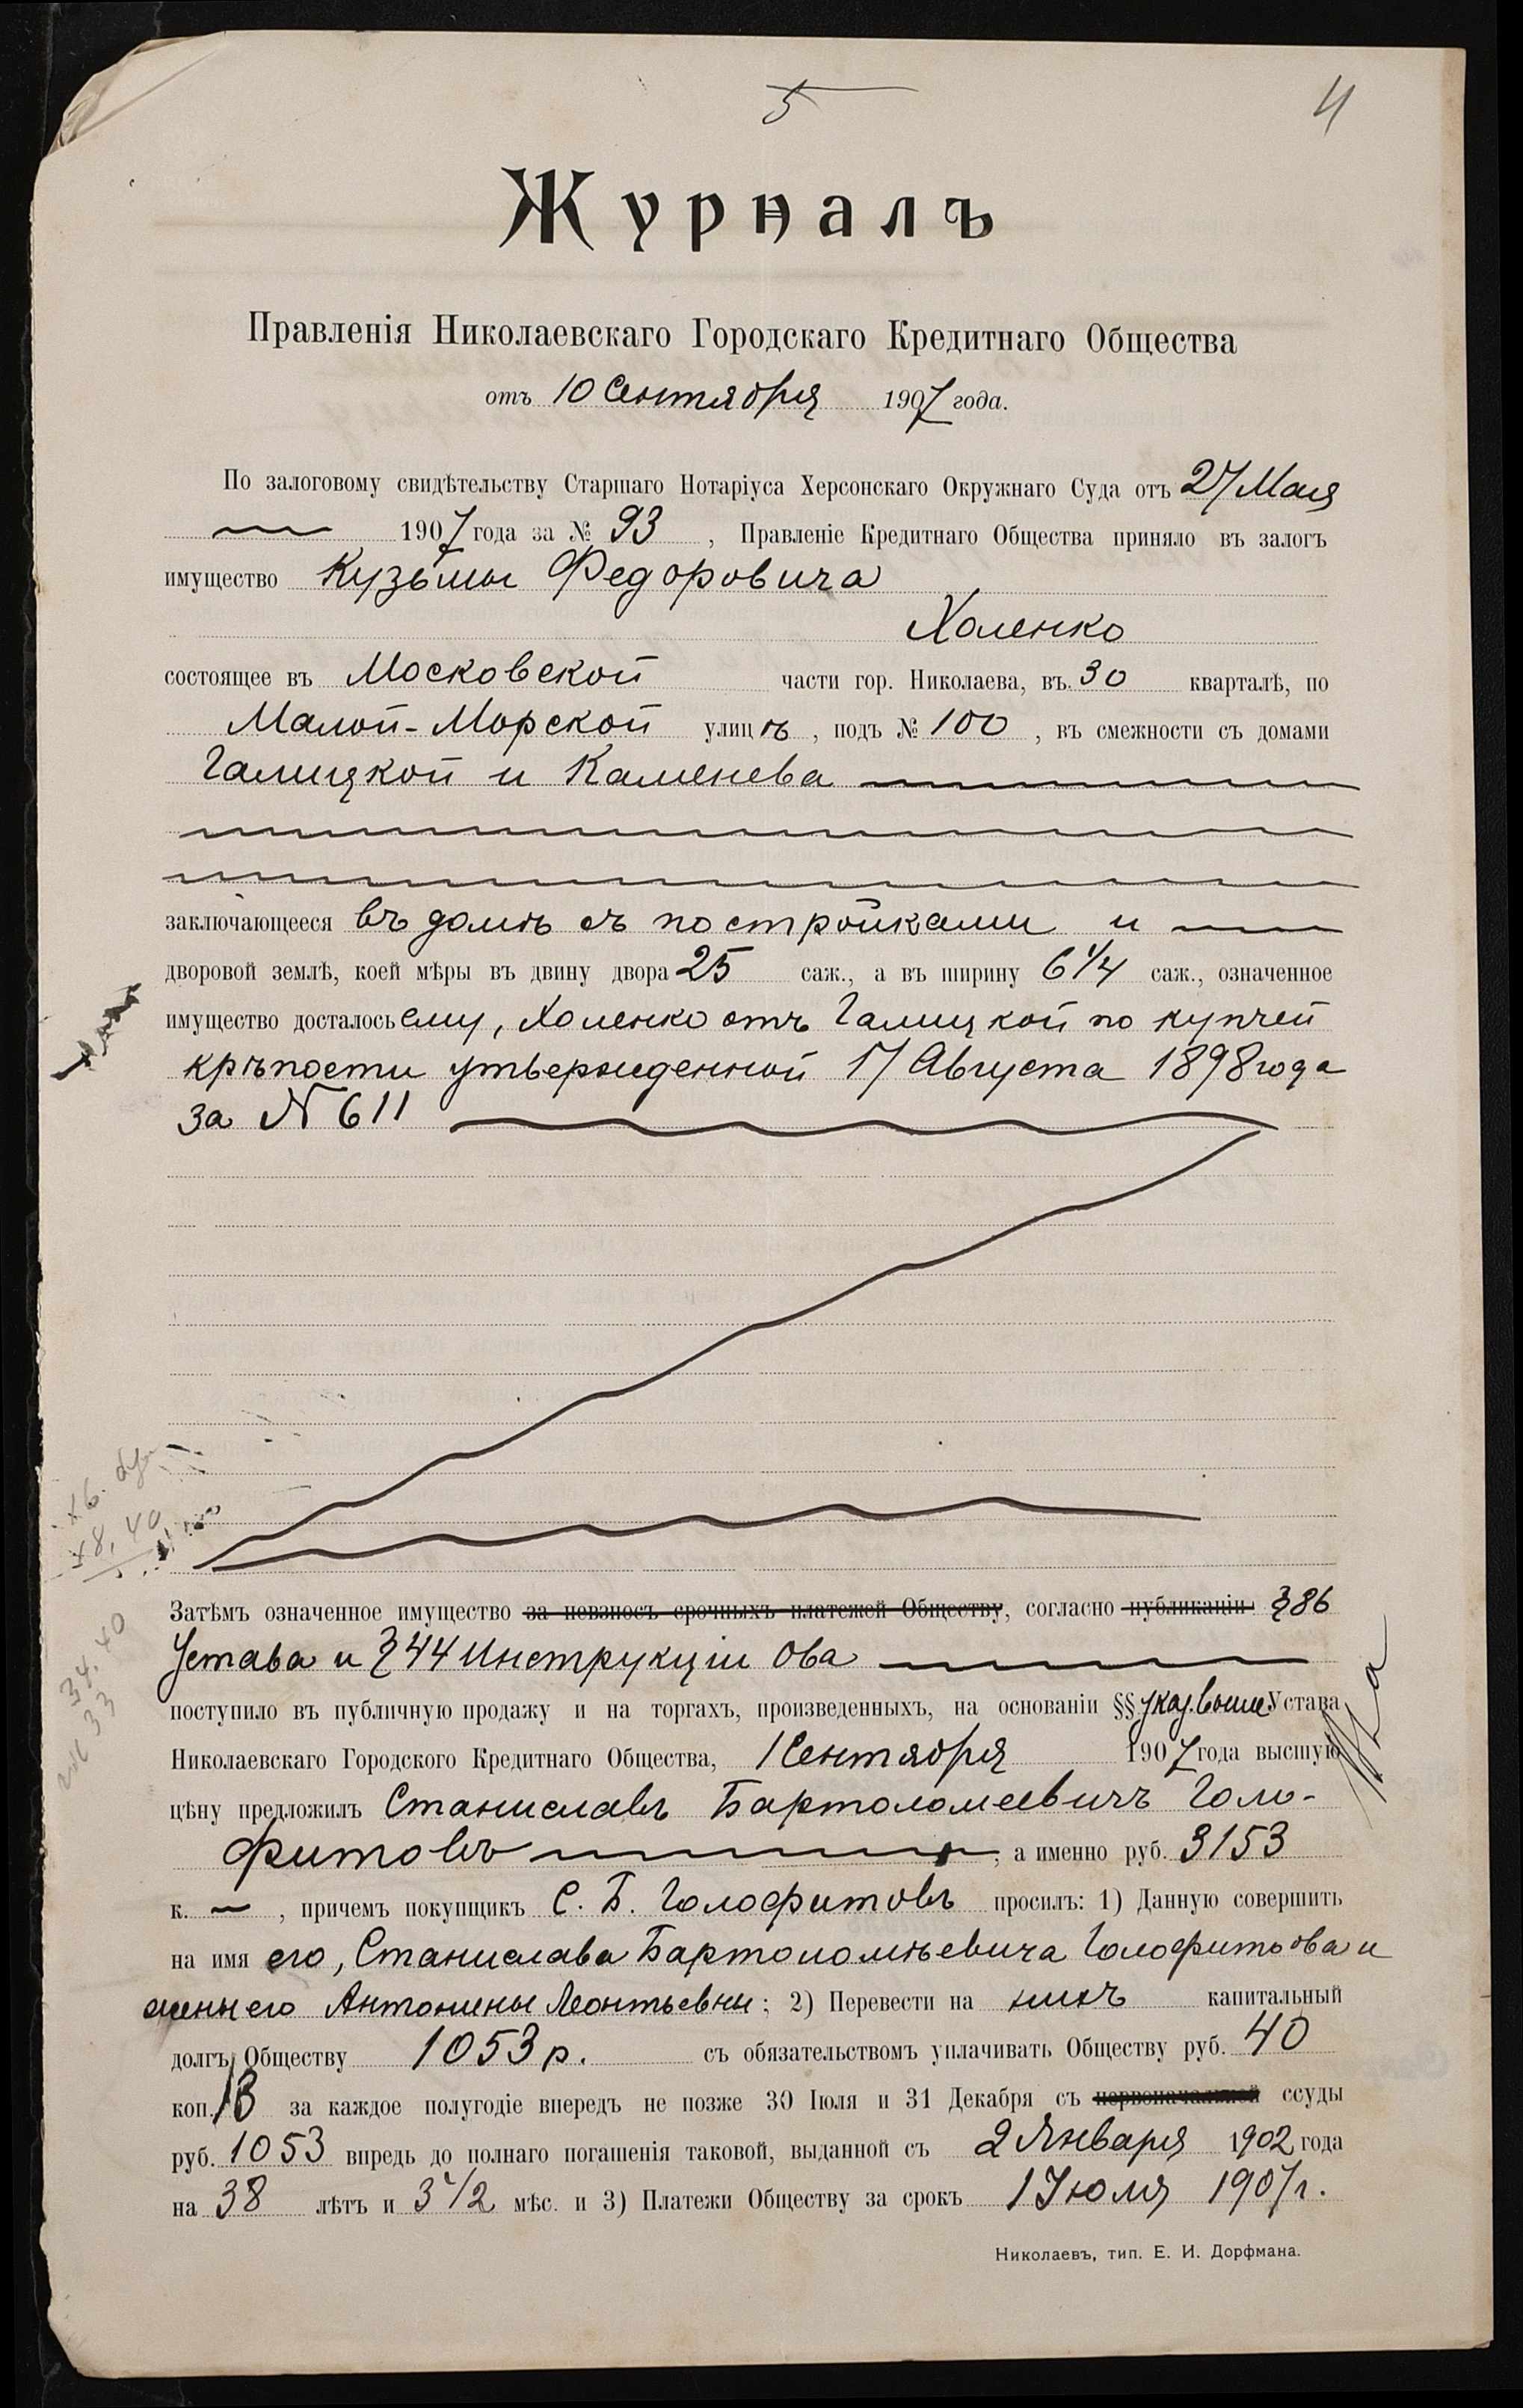 5
4
Журналъ
Правленія Николаевскаго Городскаго Кредитнаго Общества
отъ 10 Сентября 1907 года.
По залоговому свидѣтельству Старшаго Нотаріуса Херсонскаго Окружнаго Суда отъ 27 Мая
1907 года за № 93, Правленіе Кредитнаго Общества приняло въ залогъ
имущество Кузьмы Федоровича
Халенко
состоящее въ Московской части гор. Николаева, въ 30 кварталѣ, по
Малой-Морской улицѣ, подъ № 100, въ смежности съ домами
Галицкой и Каменева
заключающееся въ домѣ съ постройками и
дворовой землѣ, коей мѣры въ двину двора 25 саж., а въ ширину 6 1/4 саж., означенное
имущество досталось ему, Халенко отъ Галицкой по купчей
крѣпости утвержденной 17 Августа 1898 года
за № 611
Затѣмъ означенное имущество за невзносъ срочныхъ платежей Обществу, согласно публикаціи § 86
Устава и § 44 Инструкціи Ова
поступило въ публичную продажу и на торгахъ, произведенныхъ, на основаніи §§ указ. выше Устава
Николаевскаго Городского Кредитнаго Общества, 1 Сентября 1907 года высшую
цѣну предложилъ Станиславъ Бартоломеевичъ Голо-
фитовъ, а именно руб. 3153
к. —, причемъ покупщикъ С. Б. Голофитовъ просилъ: 1) Данную совершить
на имя его, Станислава Бартоломѣевича Голофитова и
жены его Антонины Леонтьевны; 2) Перевести на нихъ капитальный
долгъ Обществу 1053 р. съ обязательствомъ уплачивать Обществу руб. 40
коп. 13 за каждое полугодіе впередъ не позже 30 Іюля и 31 Декабря съ первоначальной ссуды
руб. 1053 впредь до полнаго погашенія таковой, выданной съ 2 Января 1902 года
на 38 лѣтъ и 3 1/2 мѣс. и 3) Платежи Обществу за срокъ 1 Іюля 1907 г.
Николаевъ, тип. Е. И. Дорфмана.